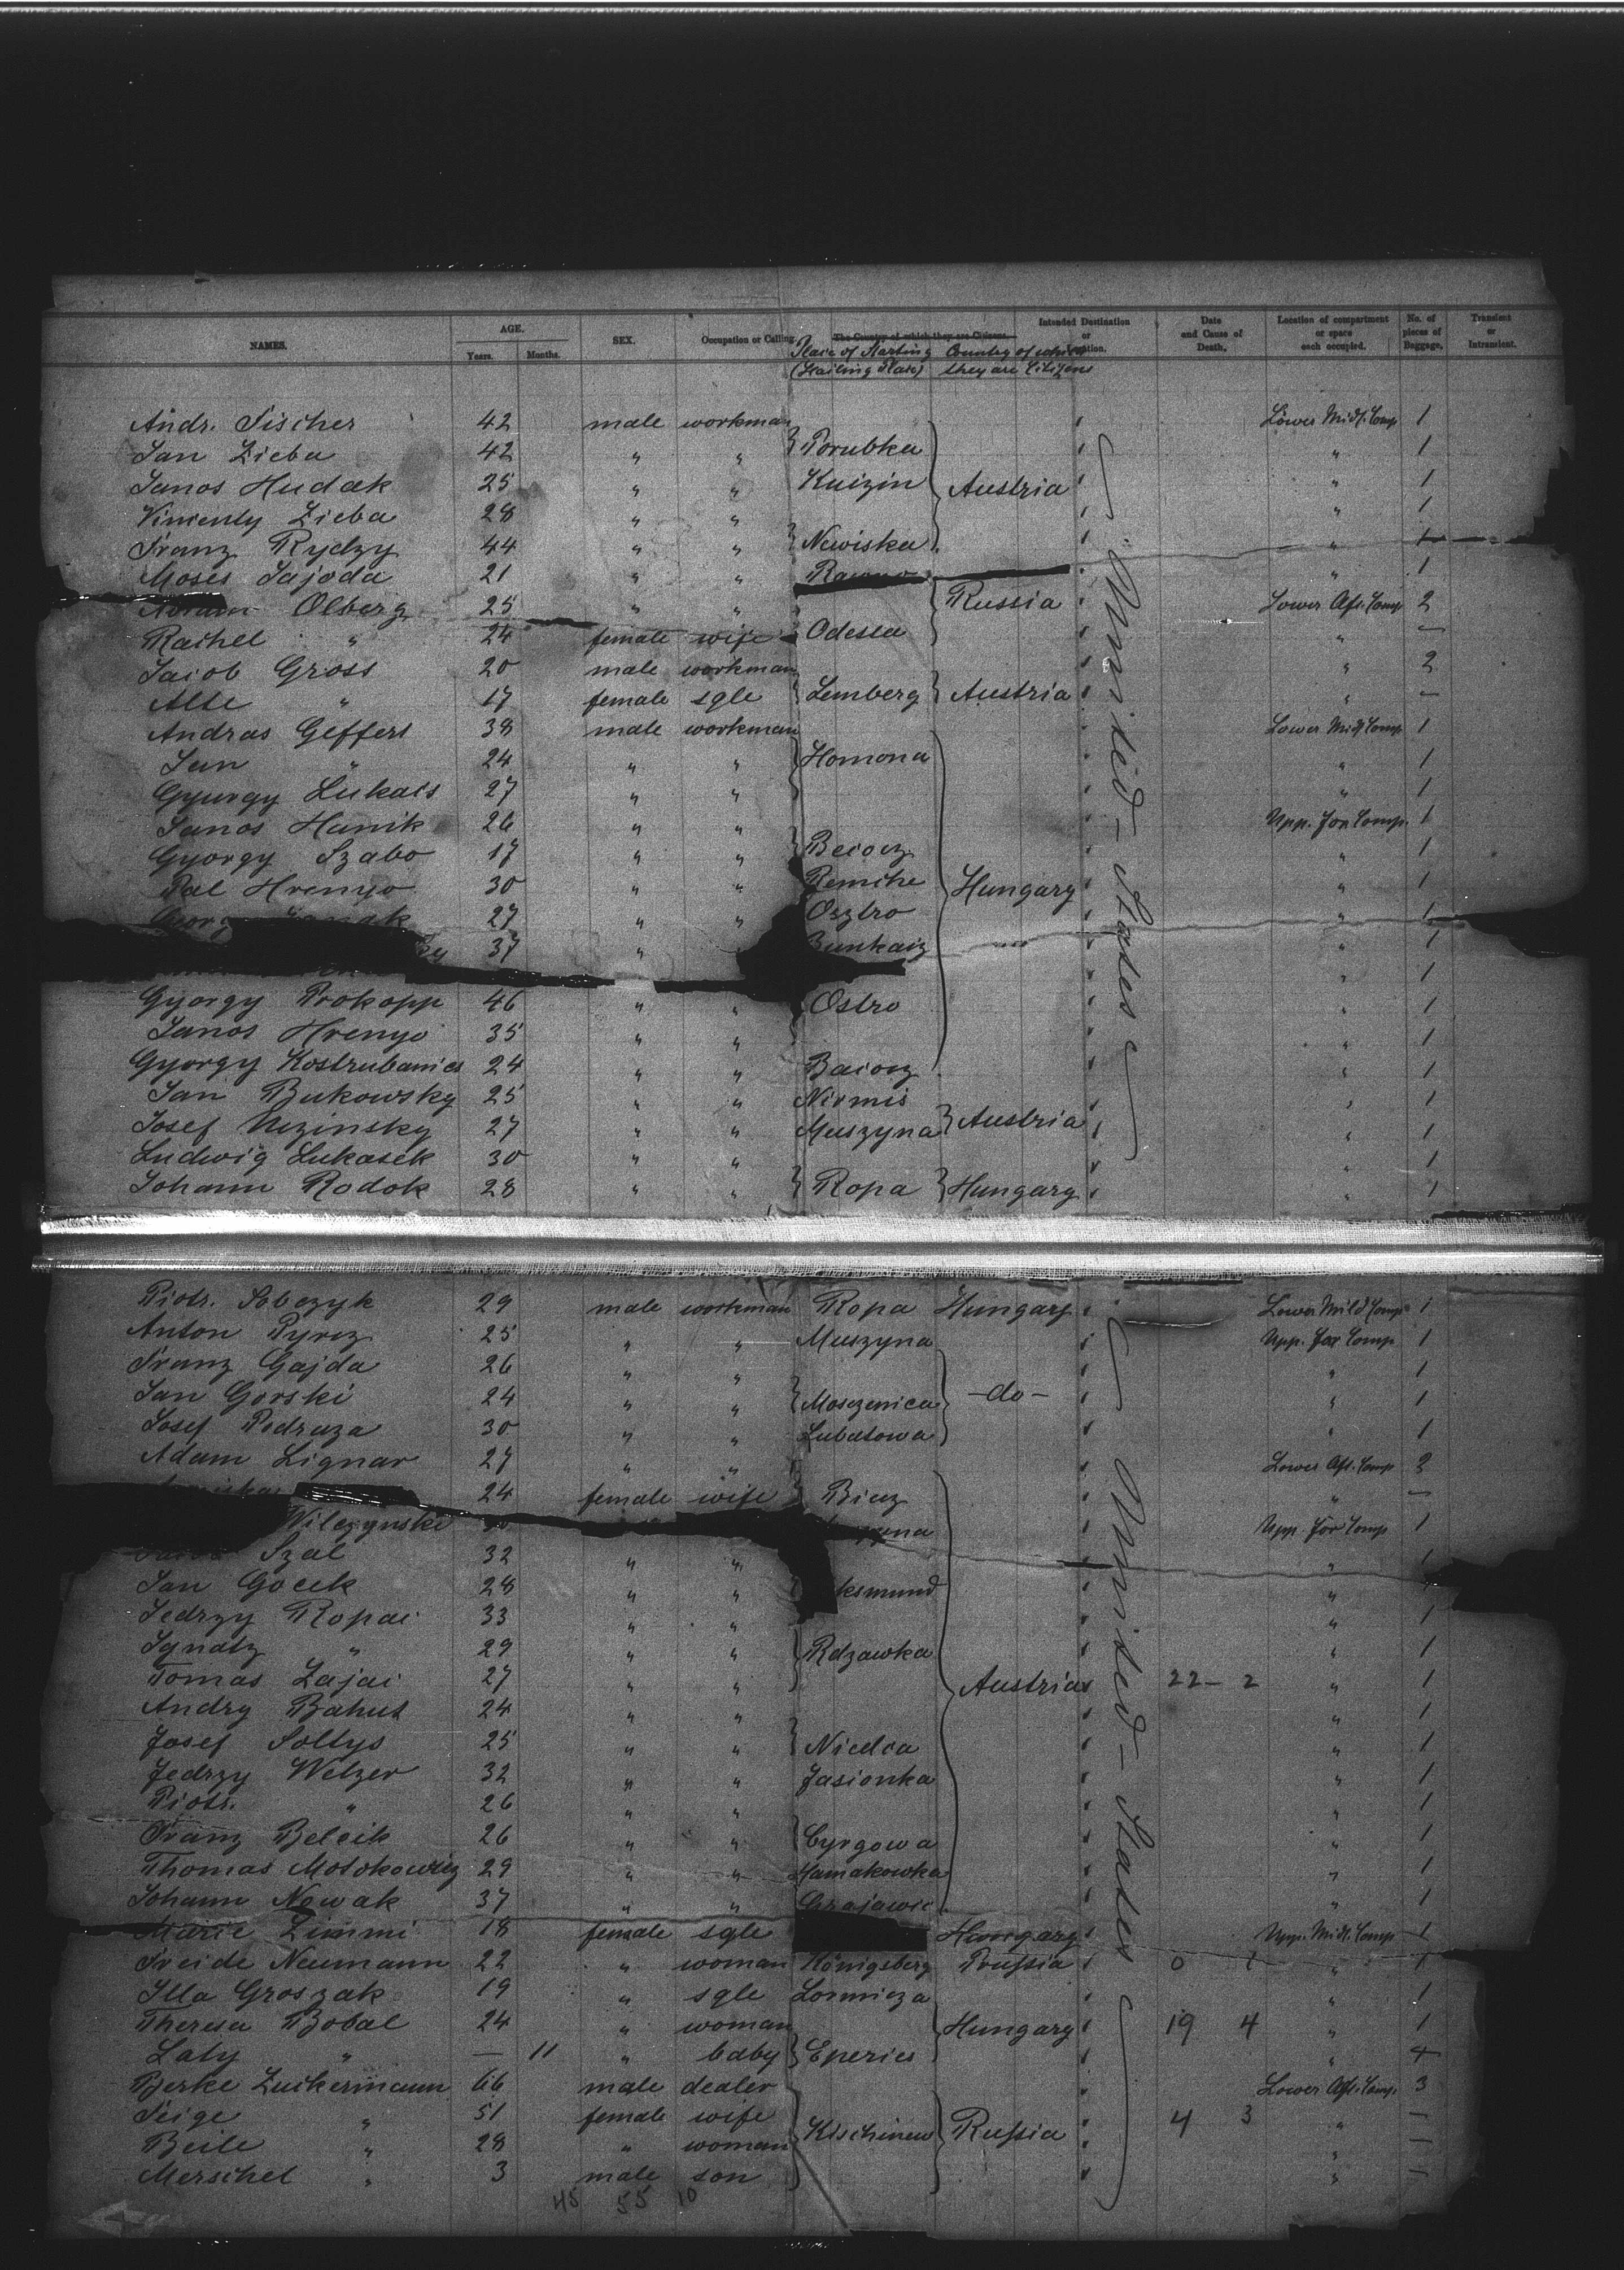 NAMES. AGE. Years. Months. SEX. Occupation or Calling. The Country of which they are Citizens. Intended Destination or Location. Date and Cause of Death. Location of compartment or space each occupied. No. of pieces of Baggage. Transient or Intransient.
Place of Starting (Hailing Place) Country of which they are Citizens
Andr. Fischer 42 male workman Lower Midl. Comp 1
Jan Zieba 42 " " Porubka " 1
Janos Hudak 25 " " Kuizin Austria " 1
Vincenty Zieba 28 " " " 1
Franz Rydzy 44 " " Newiska " 1
Moses Jajoda 21 " " " 1
Olberg 25 " " Russia Lower Aft. Comp 2
Rachel " 24 female wife Odessa " —
Jacob Gross 20 male workman " 2
Alte " 17 female sgle Lemberg Austria " —
Andras Geffert 38 male workman Lower Midl Comp 1
Jan " 24 " " Homona " 1
Gyurgy Lukacs 27 " " " 1
Janos Hanik 26 " " Upp. for Comp. 1
Gyorgy Szabo 17 " " Beiocz " 1
Pal Hrenyo 30 " " Remche Hungary " 1
27 " " Osztro " 1
37 " " 1
" 1
Gyorgy Prokopp 46 " " Ostro " 1
Janos Hrenyo 35 " " " 1
Gyorgy Kostrubanics 24 " " Baiocz " 1
Jan Bukowsky 25 " " Nirmis " 1
Josef Nezinsky 27 " " Muszyna Austria " 1
Ludwig Lukasek 30 " " " 1
Johann Rodok 28 " " Ropa Hungary " 1
United-States
Piotr. Sobczyk 29 male workman Ropa Hungary Lower Mild Comp 1
Anton Pyrcz 25 " " Muszyna Upp. for Comp 1
Franz Gajda 26 " " " 1
Jan Gorski 24 " " Moszenica -do- " 1
Josef Pedraza 30 " " Lubatowa " 1
Adam Lignar 27 " " Lower Aft. Comp 2
24 female wife Biecz " —
Wilczynski Upp. for Comp 1
Szal 32 " " " 1
Jan Gocek 28 " " ksmund "
Jedrzy Ropai 33 " " " 1
Ignatz " 29 " " Rdzawka " 1
Tomas Zajac 27 " " Austria 22 - 2 " 1
Andry Bahut 24 " " " 1
Josef Soltys 25 " " Nicdca " 1
Jedrzy Welzer 32 " " Jasionka " 1
Piotr. " 26 " " " 1
Franz Belcik 26 " " Cyrgowa " 1
Thomas Motokowicz 29 " " Hamakowka " 1
Johann Nowak 37 " " Grajawic " 1
Marie Zimmi 18 female sgle Hungary Upp. Midl. Comp 1
Freide Neumann 22 " woman Königsberg Prussia 0 1 " 1
Illa Groszak 19 " sgle Lomnicza " 1
Theresa Bobal 24 " woman Hungary 19 4 " 1
Laty " — 11 " baby Eperies "
Berke Zuckermann 66 male dealer Lower Aft. Comp. 3
Feige " 51 female wife 4 3 " —
Beile " 28 " woman Kischinew Russia " —
Merschel " 3 male son " —
United-States
45 55 10